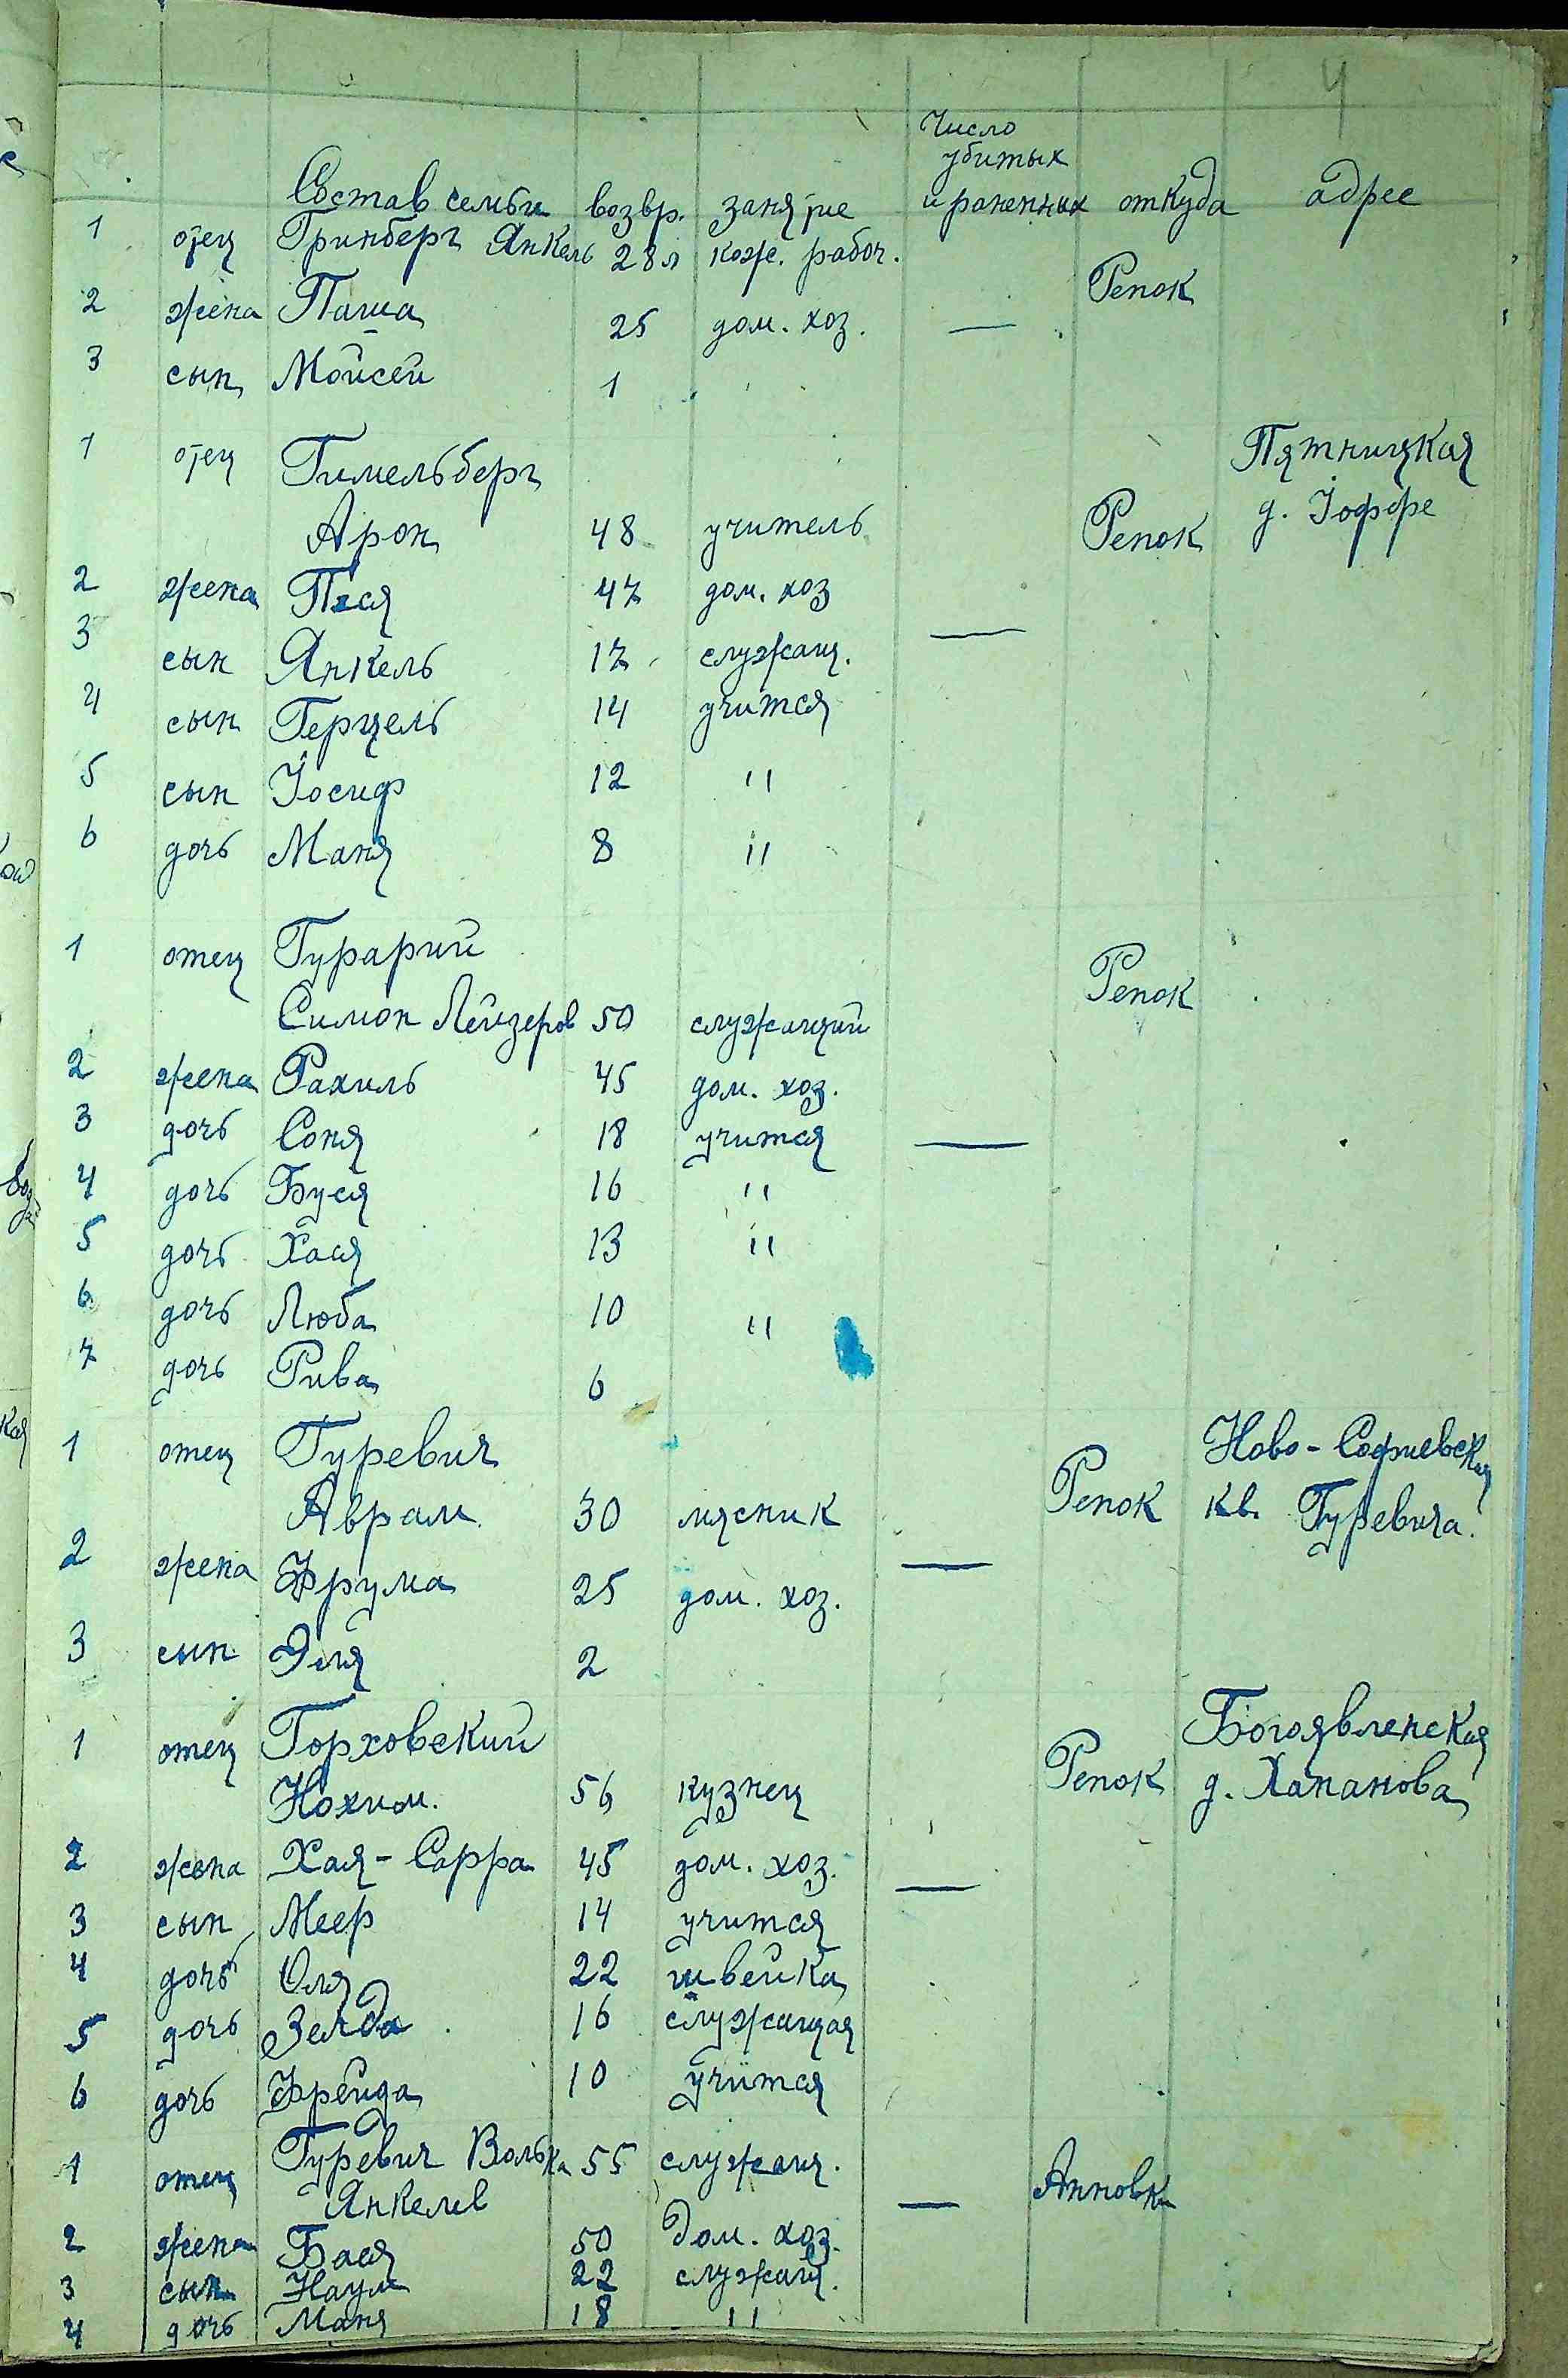 4
Число
убитых
Состав семьи возвр. занятие и раненных откуда адрес
1 отец Гринберг Янкель 28 л кож. рабоч.
Репок
2 жена Паша 25 дом. хоз. —
3 сын Мойсей 1
1 отец Гимельберг Пятницкая
д. Іоффе
Арон 48 учитель Репок
2 жена Песя 47 дом. хоз
3 сын Янкель 17 служащ. —
4 сын Герцель 14 учится
5 сын Іосиф 12 "
6 дочь Маня 8 "
1 отец Гурарий Репок
Симон Лейзеров 50 служащий
2 жена Рахиль 45 дом. хоз.
3 дочь Соня 18 учится —
4 дочь Буся 16 "
5 дочь Хася 13 "
6 дочь Люба 10 "
7 дочь Рива 6
1 отец Гуревич Ново-Софиевская
Аврам 30 мясник Репок кв. Гуревича.
2 жена Фрума 25 дом. хоз. —
3 сын Эля 2
1 отец Горховский Богоявленская
Нохим. 56 кузнец Репок д. Хапанова
2 жена Хая-Сарра 45 дом. хоз. —
3 сын Меер 14 учится
4 дочь Оля 22 швейка
5 дочь Зелда 16 служащая
6 дочь Фрейда 10 учится
1 отец Гуревич Волька 55 служащ.
Янкелев — Анновка
2 жена Бася 50 Дом. хоз.
3 сын Наум 22 служащ.
4 дочь Маня 18 "